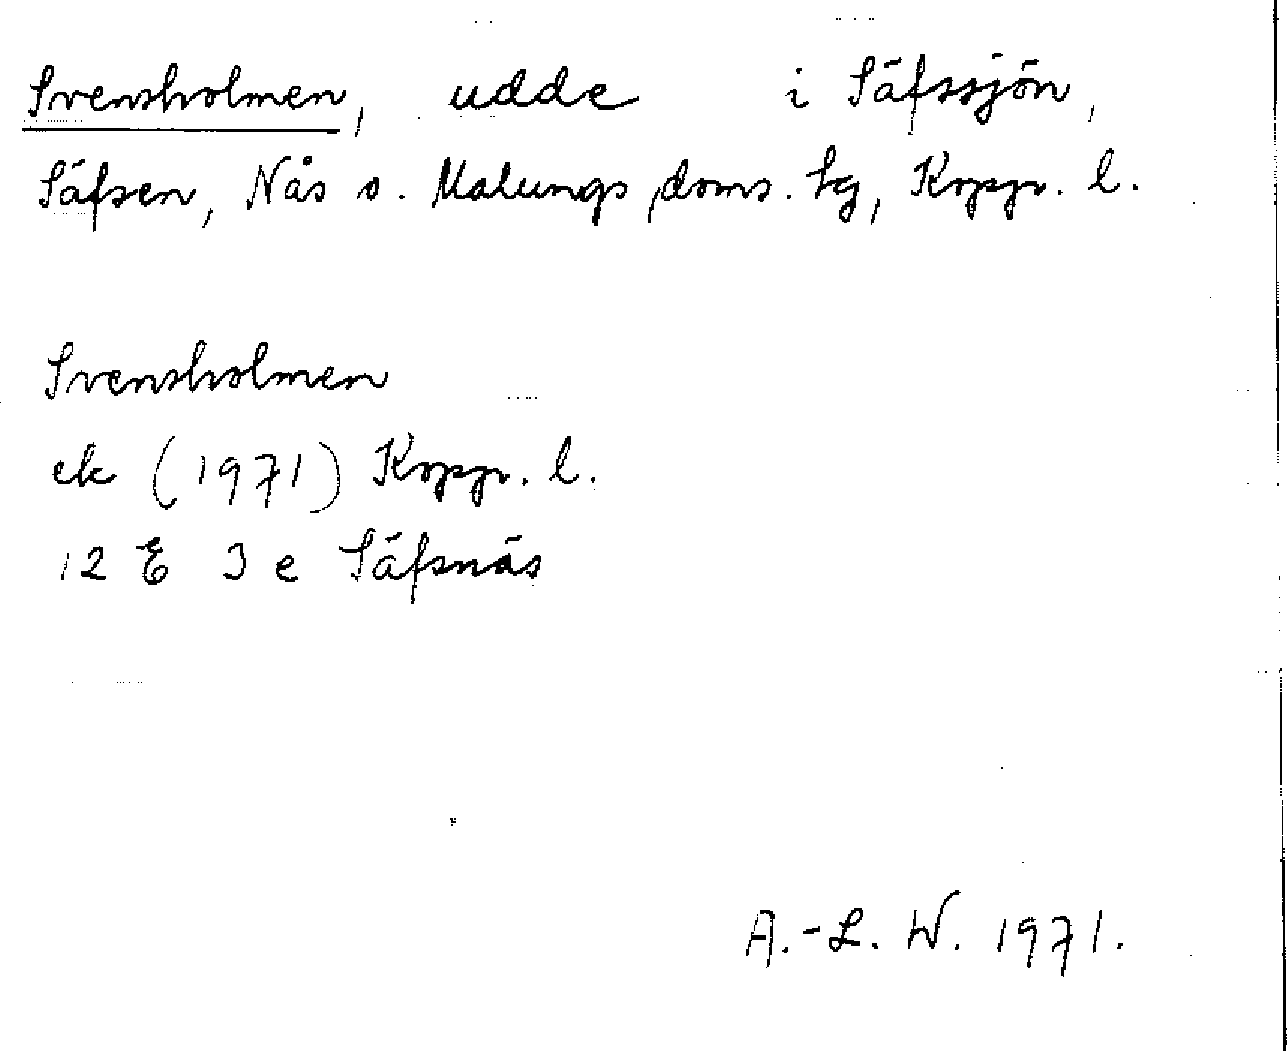 Svensholmen, udde i Säfssjön,
Säfsen, Nås o. Malungs doms. tg, Koppr. l.
Svensholmen
ek (1971) Koppr. l.
12 E 3 e Säfsnäs
A.-L. W. 1971.